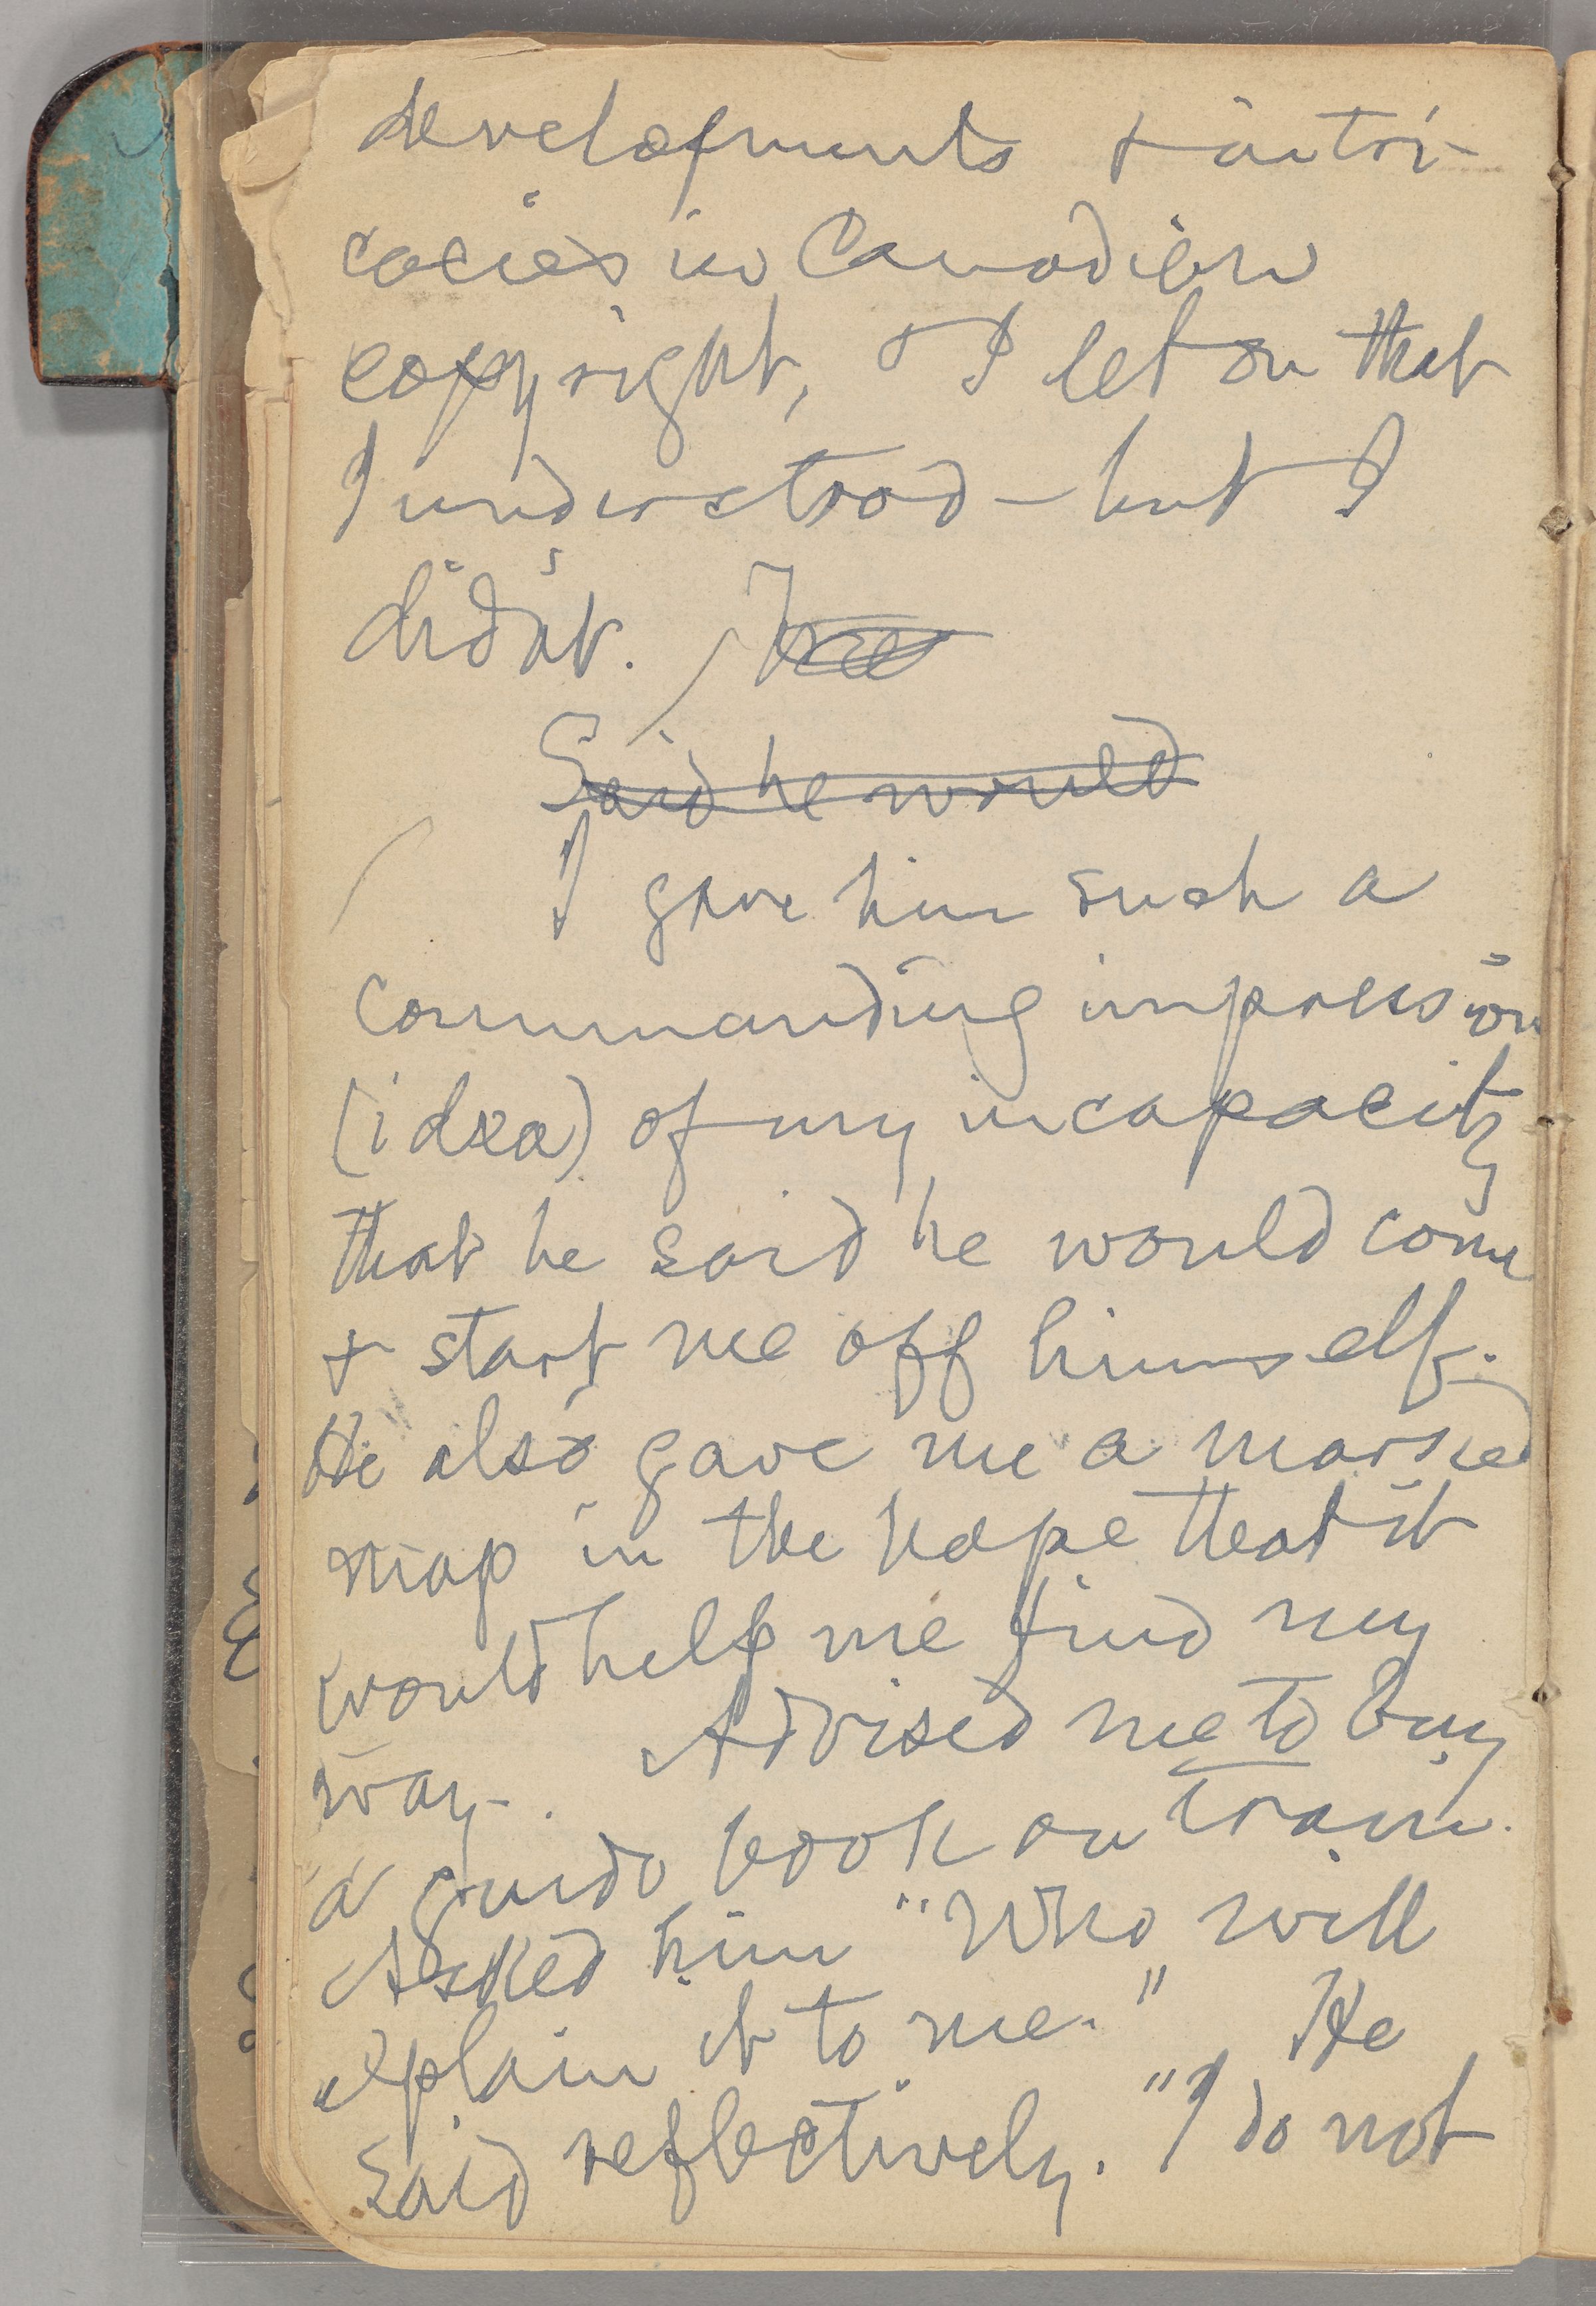 developments & intri-
cacies in Canadian
copyright, & I let on that
I understood — but I
didn't.
Said he would
I gave him such a
commanding impression
(idea) of my incapacity
that he said he would come
& start me off himself.
He also gave me a marked
map in the hope that it
would help me find my
way. Advised me to buy
a guide book on train.
Asked him "Who will
explain it to me." He
said reflectively. "I do not